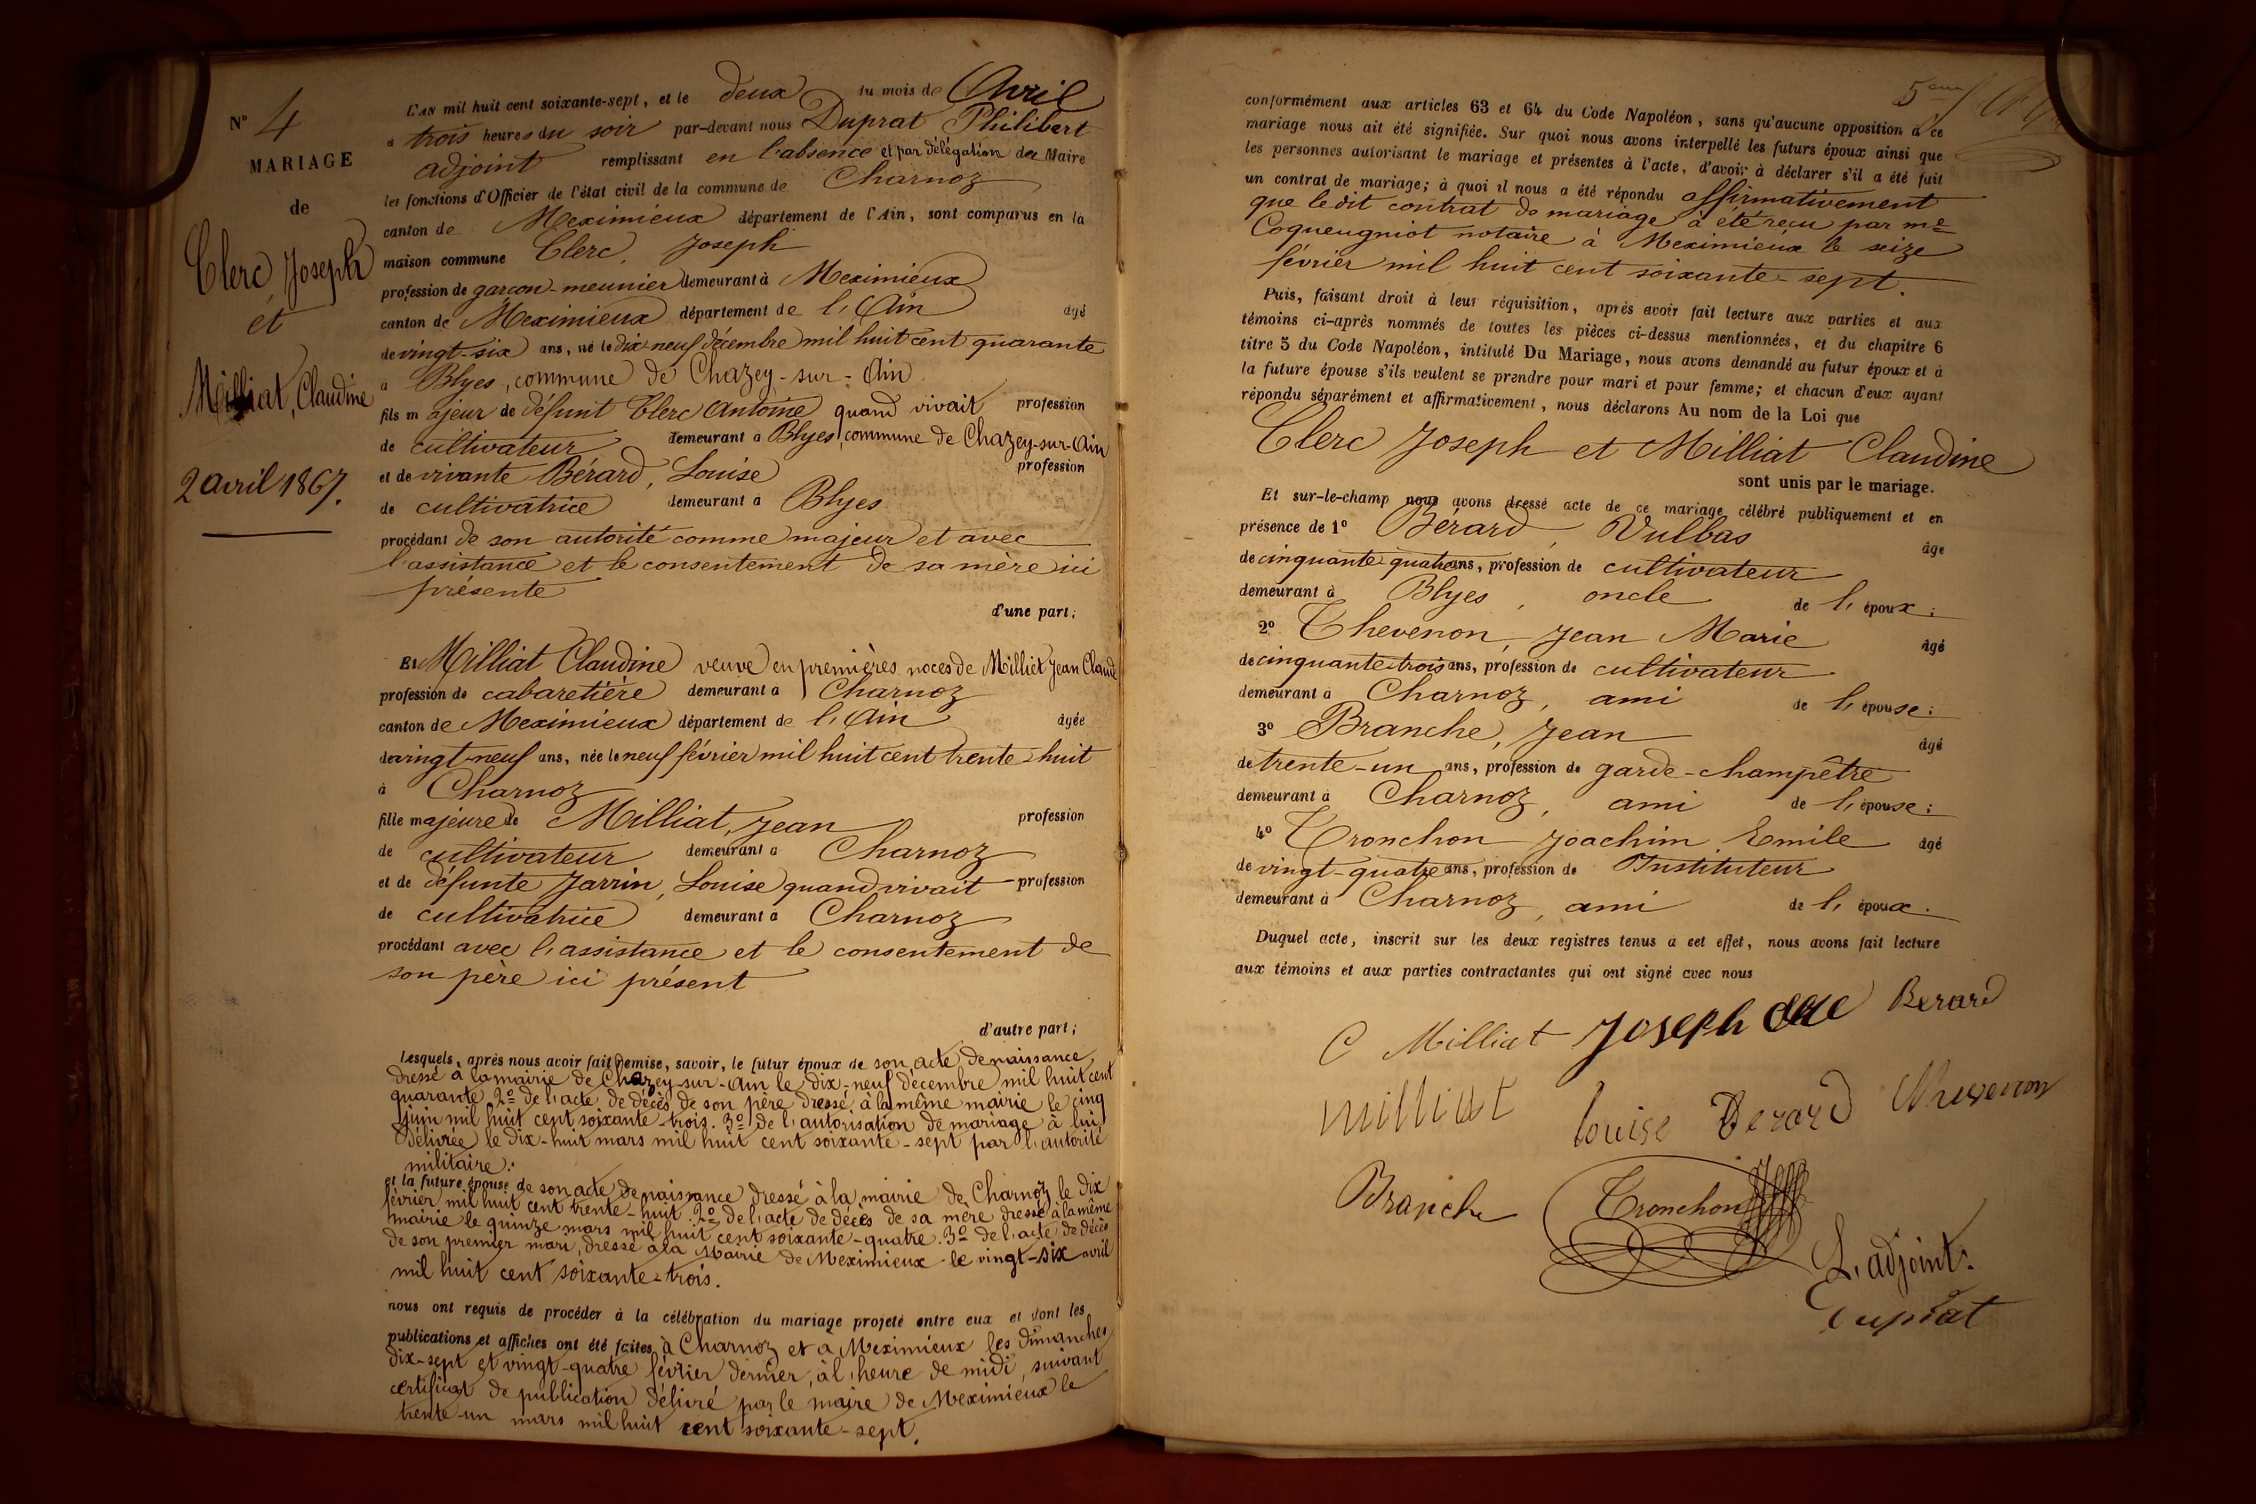 N° 4
MARIAGE
de
Clerc, Joseph
et
Milliat, Claudine
2 avril 1867.
L'AN mil huit cent soixante-sept, et le deux du mois de Avril
à trois heures du soir par-devant nous Duprat Philibert
adjoint remplissant en l'absence et par délégation du Maire
les fonctions d'Officier de l'état civil de la commune de Charnoz
canton de Meximieux département de l'Ain, sont comparus en la
maison commune Clerc, Joseph
profession de garçon-meunier demeurant à Meximieux
canton de Meximieux département de l'Ain âgé
de vingt-six ans, né le dix-neuf décembre mil huit cent quarante
à Blyes, commune de Chazey-sur-Ain
fils majeur de défunt Clerc Antoine quand vivait profession
de cultivateur demeurant à Blyes, commune de Chazey-sur-Ain
et de vivante Bérard, Louise profession
de cultivatrice demeurant à Blyes
procédant de son autorité comme majeur et avec
l'assistance et le consentement de sa mère ici
présente
d'une part;
Et Milliat Claudine veuve en premières noces de Milliet Jean Claude
profession de cabaretière demeurant à Charnoz
canton de Meximieux département de l'Ain âgée
de vingt-neuf ans, née le neuf février mil huit cent trente-huit
à Charnoz
fille majeure de Milliat, Jean profession
de cultivateur demeurant à Charnoz
et de défunte Jarrin, Louise quand vivait profession
de cultivatrice demeurant à Charnoz
procédant avec l'assistance et le consentement de
son père ici présent
d'autre part;
Lesquels, après nous avoir fait remise, savoir, le futur époux de son acte de naissance,
dressé à la mairie de Chazey-sur-Ain le dix-neuf décembre mil huit cent
quarante 2° de l'acte de décès de son père dressé à la même mairie le cinq
juin mil huit cent soixante-trois. 3° de l'autorisation de mariage à lui
délivrée le dix-huit mars mil huit cent soixante-sept par l'autorité
militaire.
et la future épouse de son acte de naissance dressé à la mairie de Charnoz le dix
février mil huit cent trente-huit 2° de l'acte de décès de sa mère dressé à la même
mairie le quinze mars mil huit cent soixante-quatre. 3° de l'acte de décès
de son premier mari, dressé à la Mairie de Meximieux le vingt-six avril
mil huit cent soixante-trois.
nous ont requis de procéder à la célébration du mariage projeté entre eux et dont les
publications et affiches ont été faites à Charnoz et à Meximieux les dimanches
dix-sept et vingt-quatre février dernier, à l'heure de midi, suivant
certificat de publication délivré par le maire de Meximieux le
trente-un mars mil huit cent soixante-sept.
conformément aux articles 63 et 64 du Code Napoléon, sans qu'aucune opposition à ce
mariage nous ait été signifiée. Sur quoi nous avons interpellé les futurs époux ainsi que
les personnes autorisant le mariage et présentes à l'acte, d'avoir à déclarer s'il a été fait
un contrat de mariage; à quoi il nous a été répondu affirmativement
que le dit contrat de mariage a été reçu par me
Coqueugniot notaire à Meximieux le seize
février mil huit cent soixante-sept.
Puis, faisant droit à leur réquisition, après avoir fait lecture aux parties et aux
témoins ci-après nommés de toutes les pièces ci-dessus mentionnées, et du chapitre 6
titre 5 du Code Napoléon, intitulé Du Mariage, nous avons demandé au futur époux et à
la future épouse s'ils veulent se prendre pour mari et pour femme; et chacun d'eux ayant
répondu séparément et affirmativement, nous déclarons Au nom de la Loi que
Clerc Joseph et Milliat Claudine
sont unis par le mariage.
Et sur-le-champ nous avons dressé acte de ce mariage célébré publiquement et en
présence de 1° Bérard, Vulbas âgé
de cinquante quatre ans, profession de cultivateur
demeurant à Blyes, oncle de l'époux;
2° Thevenon, Jean Marie âgé
de cinquante trois ans, profession de cultivateur
demeurant à Charnoz, ami de l'épouse;
3° Branche, Jean âgé
de trente-un ans, profession de garde-champêtre
demeurant à Charnoz, ami de l'épouse;
4° Tronchon Joachim Emile âgé
de vingt-quatre ans, profession de Instituteur
demeurant à Charnoz, ami de l'époux.
Duquel acte, inscrit sur les deux registres tenus à cet effet, nous avons fait lecture
aux témoins et aux parties contractantes qui ont signé avec nous
C Milliat Joseph Berard
Milliat louise Berard Thevenon
Branche Tronchon
L'adjoint:
Duprat